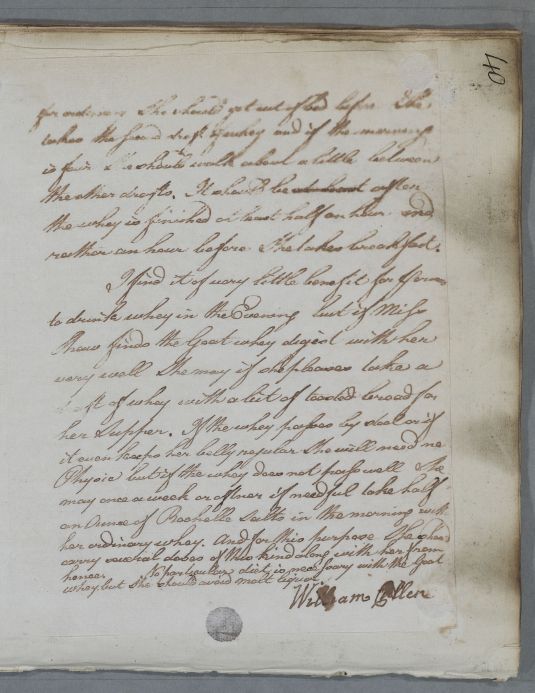 40
for  She should get out of bed before She
takes the  draft of whey and if the morning
is fair She should walk about a little between
the other drafts. It should be after
the whey is finished at least half an hour and
rather an hour before She takes breakfast.
I find it of very little benefit for
to drink whey in the Evening but if Miss
Shaw finds the Goat whey digest with her
very well She may if she pleases take a
draft of whey with a bit of toasted bread for
her Supper. If the whey passes by stool or if
it even keeps her belly regular She will need no
Physic but if the whey does not pass well She
may once a week or oftener if needful take half
an Ounce of Rochelle Salts in the morning with
her ordinary whey. And for this purpose She should
carry several doses of this kind along with her from
hence. No particular diet is necessary with the Goat
whey but She should avoid malt liquor
William Cullen